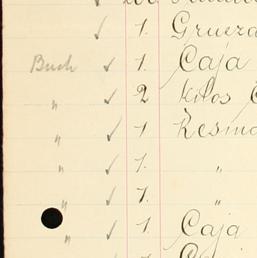 ✓ 1. Grueza
Buch ✓ 1. Caja
" ✓ 2 Kilos
" ✓ 1 Resina
" ✓ 1. "
" ✓ 1. "
" ✓ 1 Caja